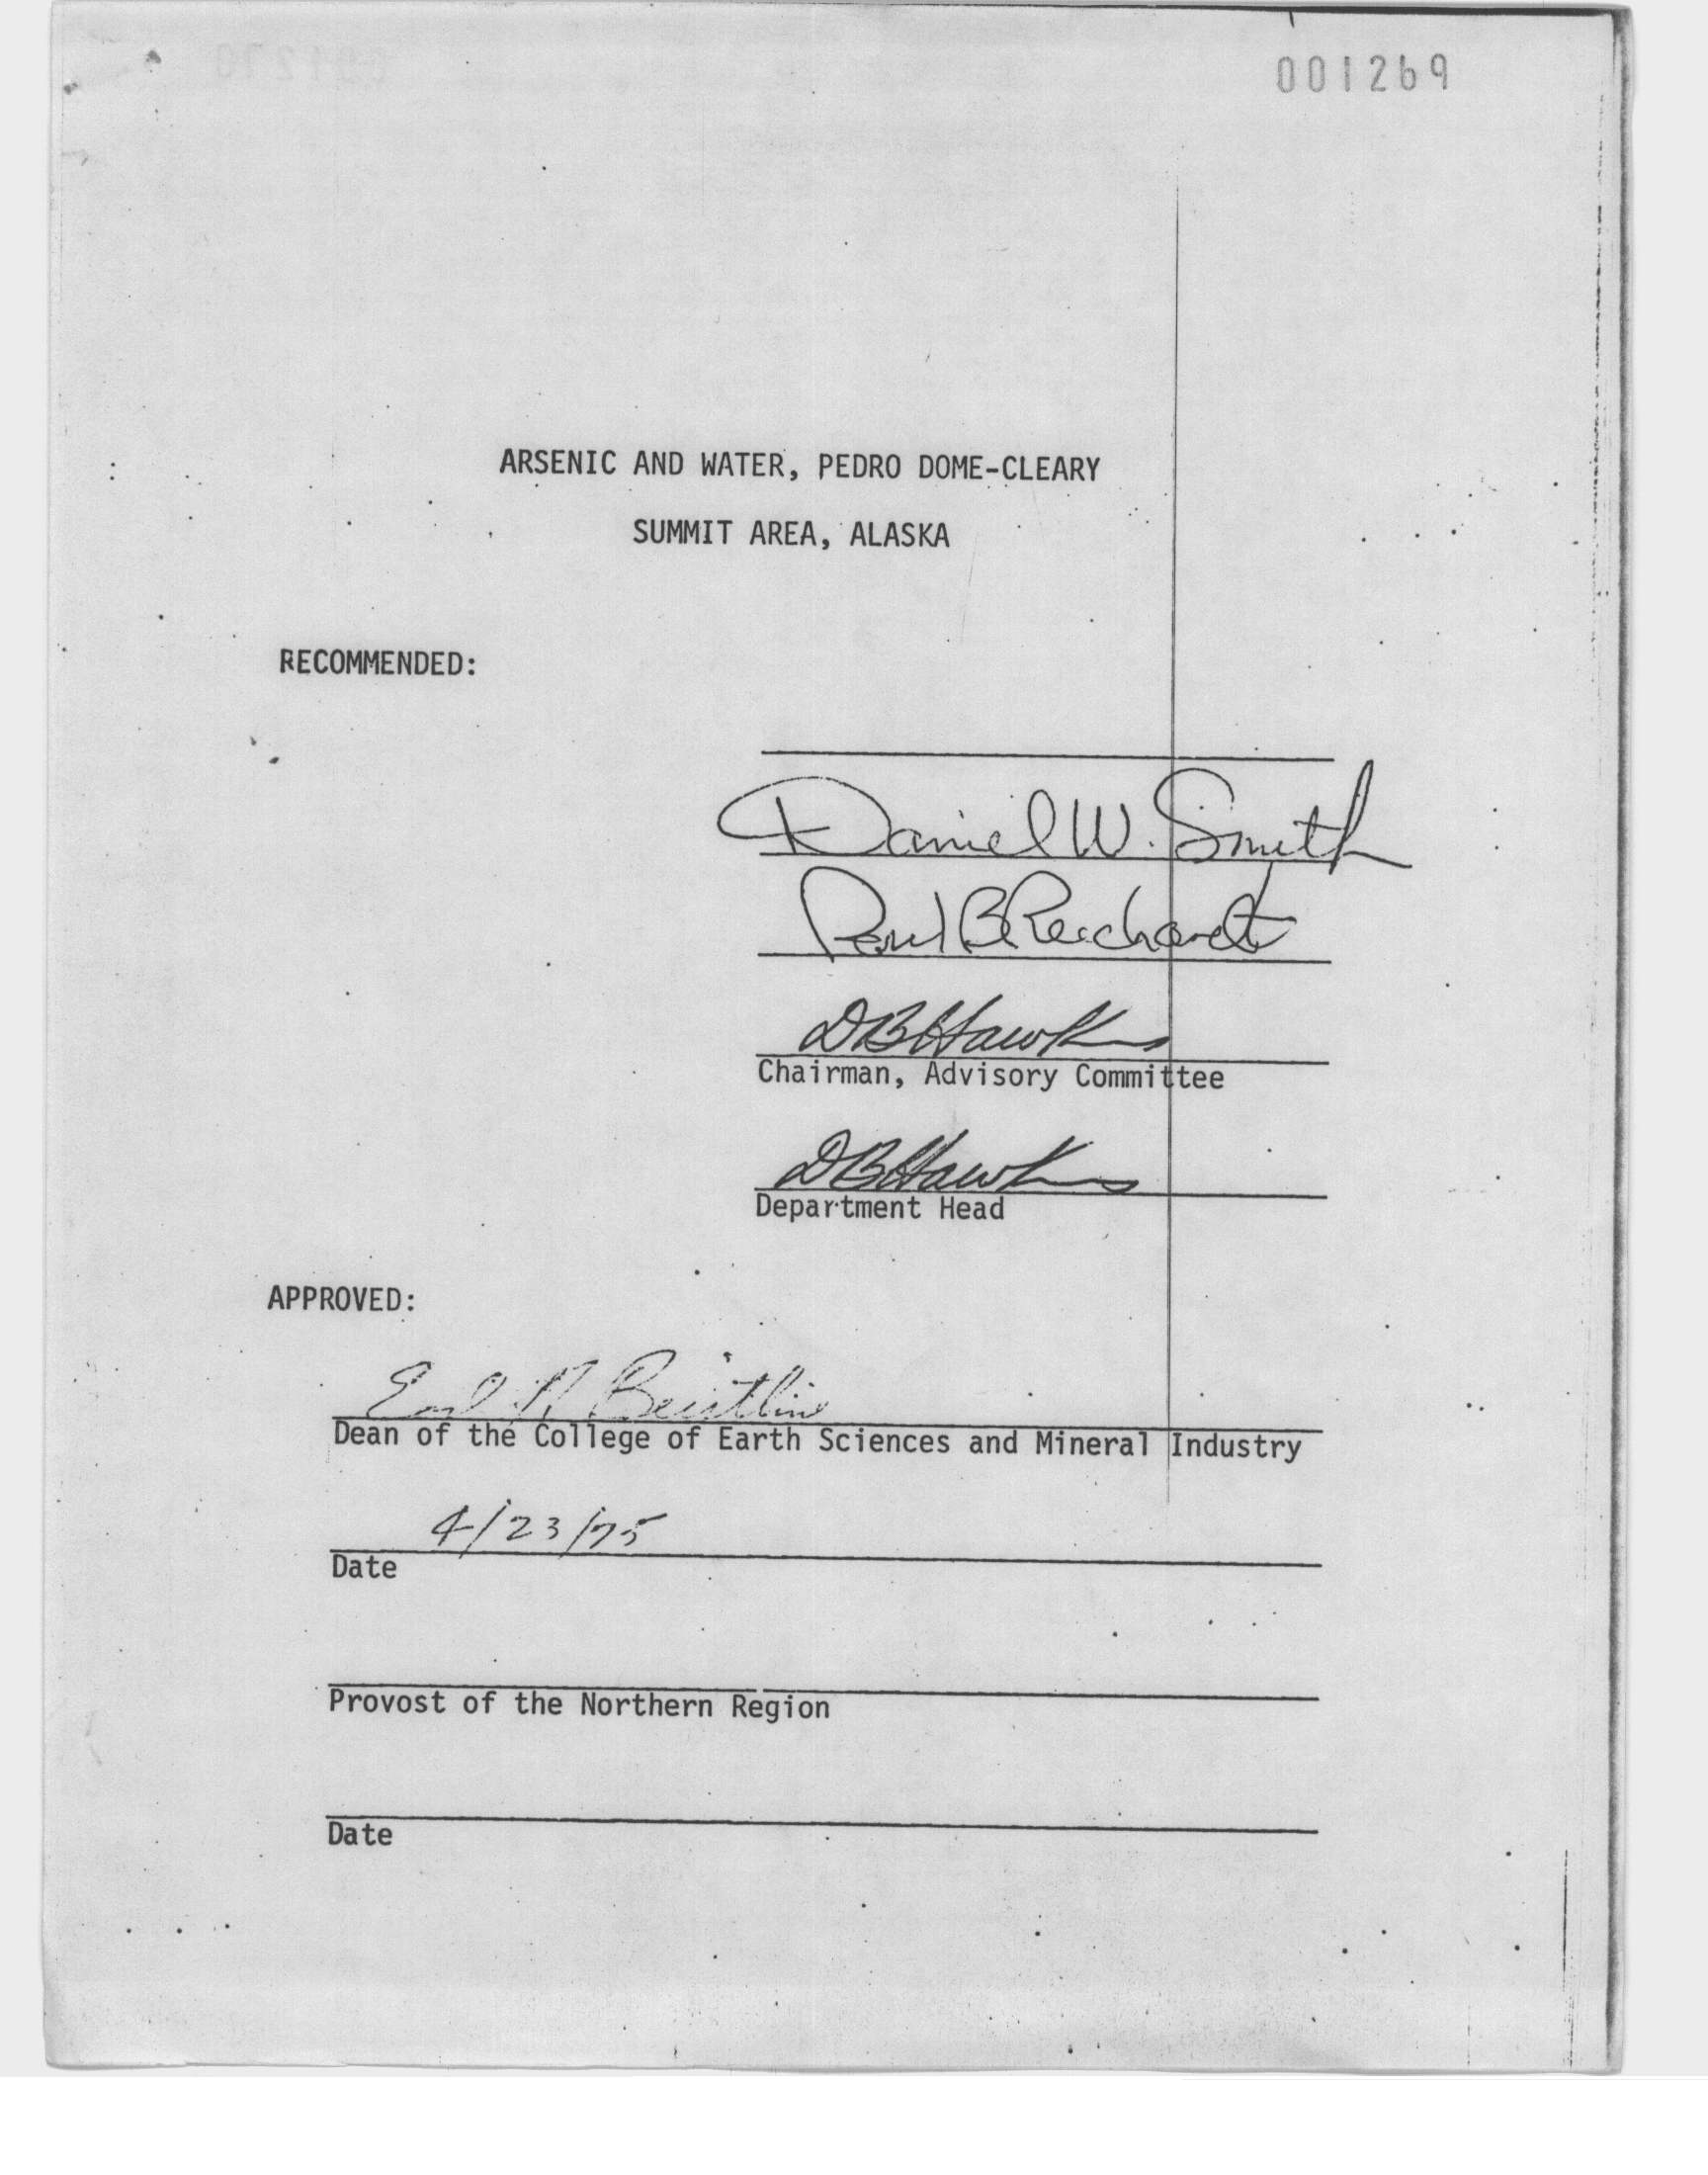 001269
ARSENIC AND WATER, PEDRO DOME-CLEARY
SUMMIT AREA, ALASKA
RECOMMENDED:
Daniel W. Smith
Paul B Reichardt
DBHawkins
Chairman, Advisory Committee
DBHawkins
Department Head
APPROVED:
Earl H Beistline
Dean of the College of Earth Sciences and Mineral Industry
4/23/75
Date
Provost of the Northern Region
Date